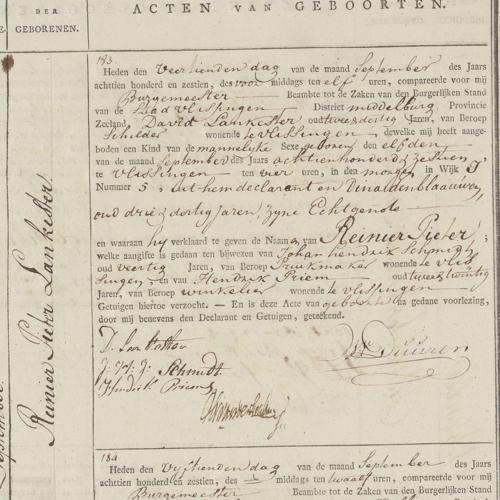 DER
GEBORENEN.
ACTEN VAN GEBOORTEN.
183.
Heden den Veertienden dag van de maand September des Jaars
achttien honderd en zestien, des voor middags ten elf uren, compareerde voor mij
Burgemeester Beambte tot de Zaken van den Burgerlijken Stand
van de Stad Vlissingen District middelburg Provincie
Zeeland, David Lankester oud twee dertig Jaren, van Beroep
Schilder wonende te vlissingen, dewelke mij heeft aange-
boden een Kind van de mannelyke Sexe, geboren den elfden
van de maand September des Jaars achtienhonderd zestien
te vlissingen ten vier uren, in den morgen in Wijk J
Nummer 5, uit hem declarant en Dina den blaauwen,
oud drie dertig Jaren, zyne Echtgenote
en waaraan hy verklaard te geven de Naam van Reinier Pieter;
welke aangifte is gedaan ten bijwezen van Johan hendrik Schmidt
oud veertig Jaren, van Beroep wonende te vlis
singen; en van Hendrik Priem oud twee twintig
Jaren, van Beroep winkelier wonende te vlissingen
Getuigen hiertoe verzocht. — En is deze Acte van geboorte na gedane voorlezing,
door mij benevens den Declarant en Getuigen, geteekend.
J: H: J: Schmidt
Hendrik Priem
Reinier Pieter Lankester.
September.
184.
Heden den Vyftienden dag van de maand September des Jaars
achttien honderd en zestien, des middags ten twaalf uren, compareerde voor mij
Burgemeester Beambte tot de Zaken van den Burgerlijken Stand